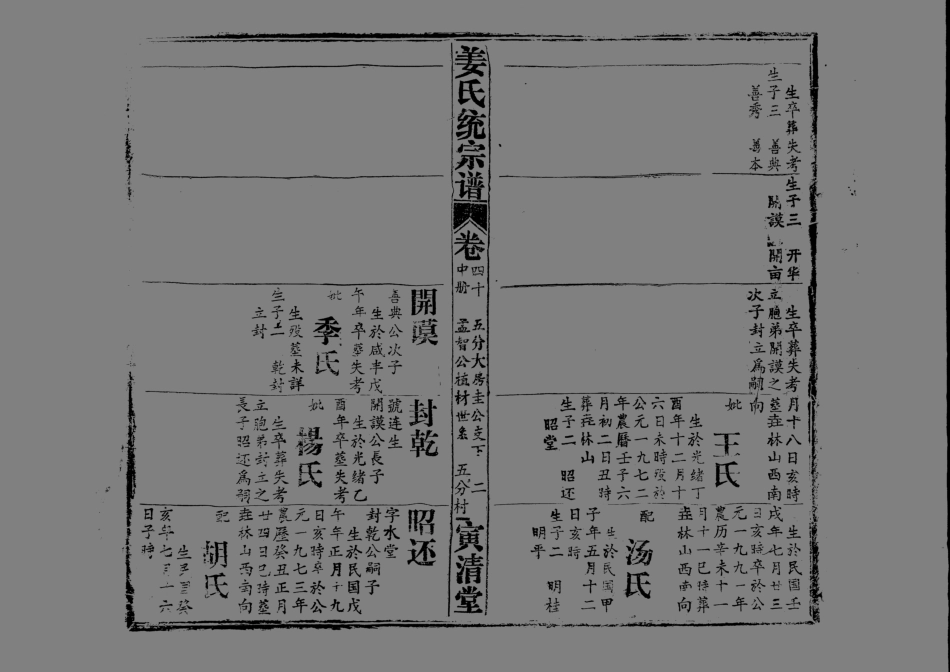 生卒葬失考
生子三　善典
善秀　善本
生子三　开华
開謨　開亩
生卒葬失考
立胞弟開謨之
次子封立爲嗣
月十八日亥時
葬茔林山西南
向
妣
王氏
生於光緒丁
酉年十二月十
六日未時歿於
公元一九七二
年農曆壬子六
月初二日丑時
葬茔林山
生子二　昭还
昭堂
生於民国壬
戌年七月廿三
日亥時卒於公
元一九九一年
農历辛未十一
月十一巳時葬
茔林山西南向
配
汤氏
生於民国甲
子年五月十二
日亥時
生子二　明桂
明平
姜氏统宗谱
卷
四十
中册
五分大房圭公支下
孟智公植材世系
二
五分村
寅清堂
開謨
善典公次子
生於咸丰戊
午年卒葬失考
妣
季氏
生殁葬未詳
生子二　乾封
立封
封乾
號连生
開謨公長子
生於光緒乙
酉年卒葬失考
妣
楊氏
生卒葬失考
立胞弟封立之
長子昭还爲嗣
昭还
字水堂
封乾公嗣子
生於民國戊
午年正月十九
日亥時卒於公
元一九七三年
農歷癸丑正月
廿四日巳時葬
茔林山西南向
配
胡氏
生民国癸
亥年七月十六
日子時